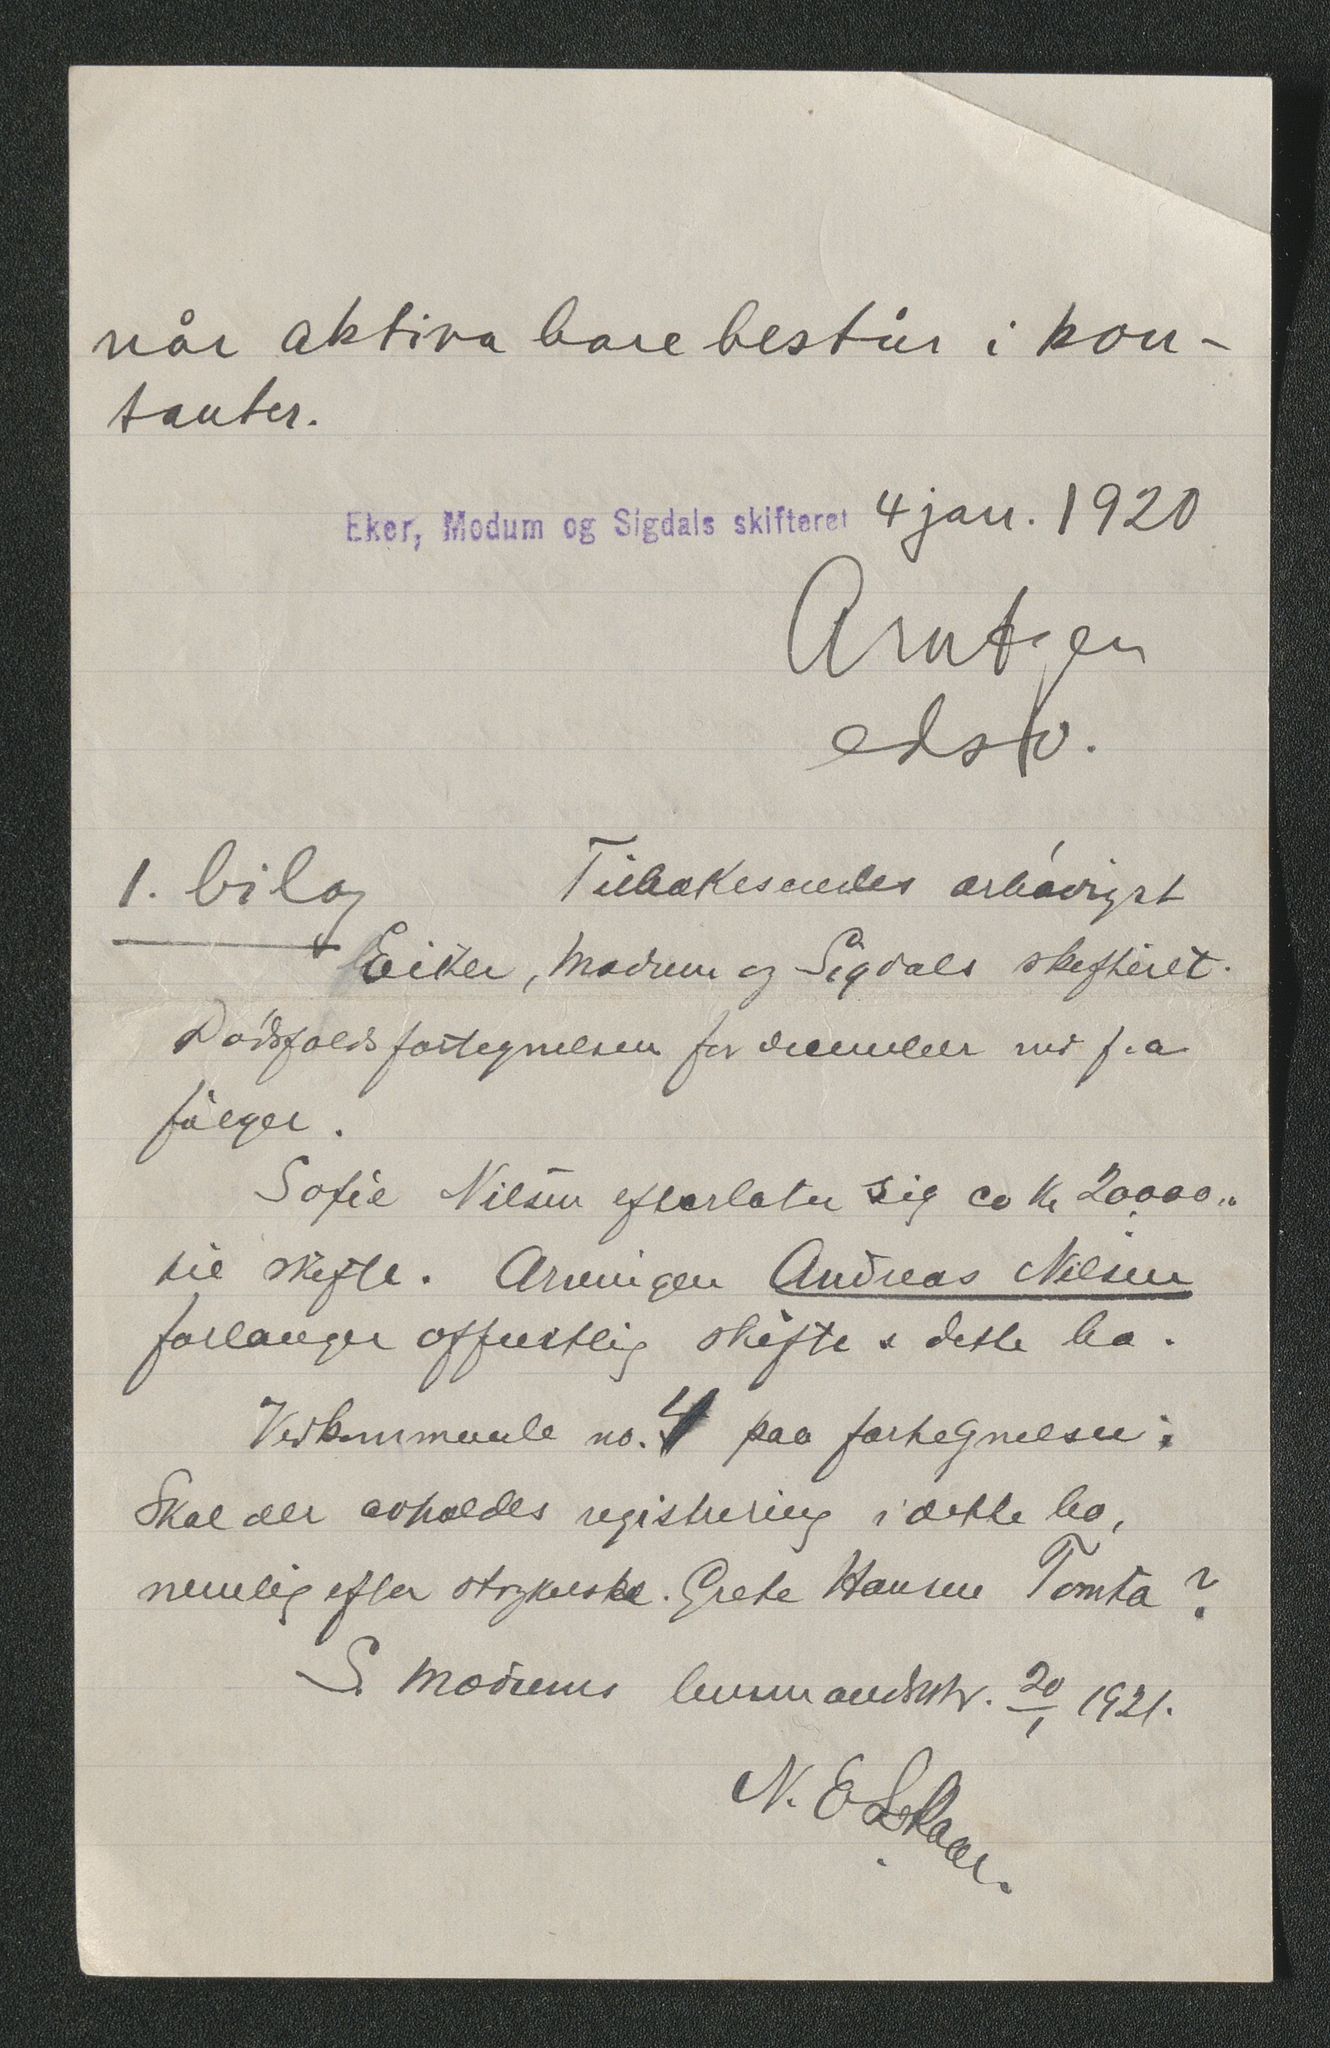 når aktiva bare består i kon-
tanter.
Eker, Modum og Sigdals skifteret 4 jan. 1920
Arntzen
edsv.
1. bilag
Tilbakesendes ærbødigst
Eiker, Modum og Sigdals skifteret.
Dødsfaldsfortegnelsen for desember md f.a
følger.
Sofie Nilsen efterlater sig ca kr 20,000,,
til skifte. Arvingen Andreas Nilsen
forlanger offentlig skifte i dette bo.
Vedkommende no. 4 paa fortegnelsen:
Skal der avholdes registrering i dette bo,
nemlig efter strykerske. Grete Hansen Tomta?
S. Modums lensmandsktr. 20/1 1921.
N. E. Skaar.